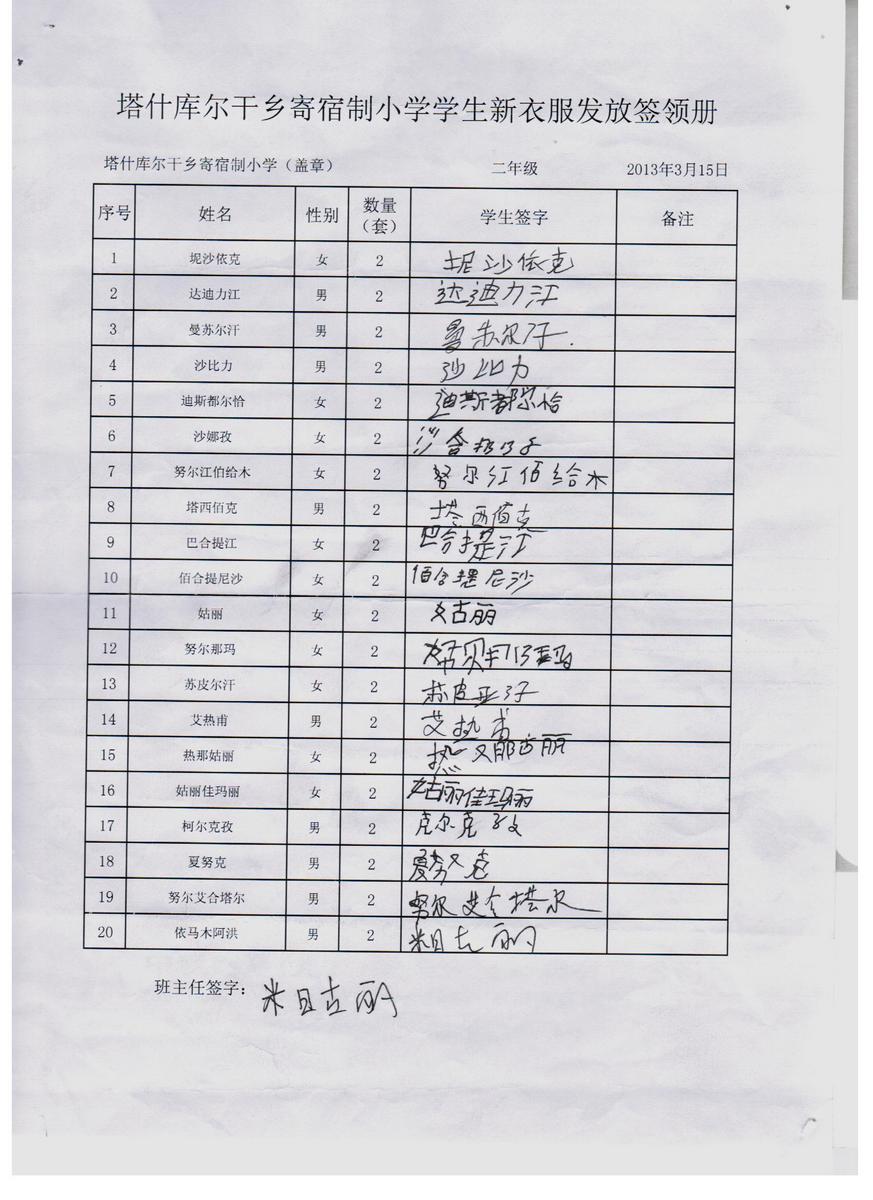 塔什库尔干乡寄宿制小学学生新衣服发放签领册
塔什库尔干乡寄宿制小学（盖章） 二年级 2013年3月15日
序号 姓名 性别 数量（套） 学生签字 备注
1 坭沙依克 女 2 坭沙依克
2 达迪力江 男 2 达迪力江
3 曼苏尔汗 男 2 曼苏尔汗
4 沙比力 男 2 沙比力
5 迪斯都尔恰 女 2 迪斯都尔恰
6 沙娜孜 女 2 沙
7 努尔江伯给木 女 2 努尔红佰给木
8 塔西佰克 男 2 塔西佰克
9 巴合提江 女 2 巴合提江
10 佰合提尼沙 女 2 佰合提尼沙
11 姑丽 女 2 姑丽
12 努尔那玛 女 2
13 苏皮尔汗 女 2 苏皮亚汗
14 艾热甫 男 2 艾热甫
15 热那姑丽 女 2 热那姑丽
16 姑丽佳玛丽 女 2 姑丽佳玛丽
17 柯尔克孜 男 2 克尔克孜
18 夏努克 男 2 夏努克
19 努尔艾合塔尔 男 2 努尔艾合塔尔
20 依马木阿洪 男 2 米日古丽
班主任签字： 米日古丽